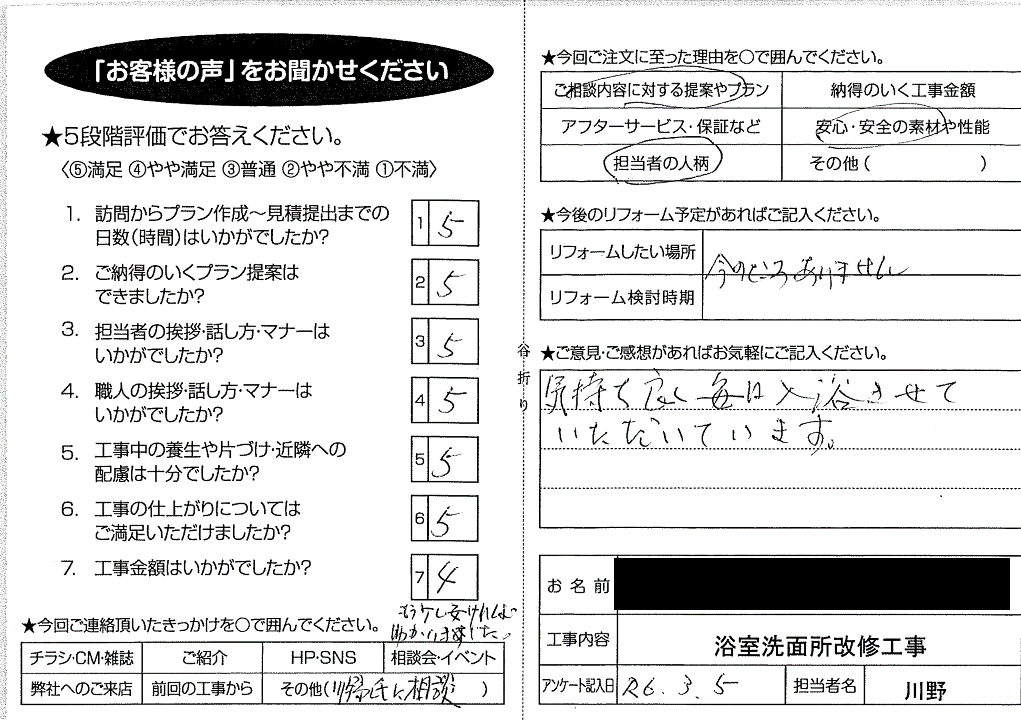 「お客様の声」をお聞かせください
★5段階評価でお答えください。
〈⑤満足 ④やや満足 ③普通 ②やや不満 ①不満〉
1. 訪問からプラン作成～見積提出までの
日数(時間)はいかがでしたか?
1 5
2. ご納得のいくプラン提案は
できましたか?
2 5
3. 担当者の挨拶・話し方・マナーは
いかがでしたか?
3 5
4. 職人の挨拶・話し方・マナーは
いかがでしたか?
4 5
5. 工事中の養生や片づけ・近隣への
配慮は十分でしたか?
5 5
6. 工事の仕上がりについては
ご満足いただけましたか?
6 5
7. 工事金額はいかがでしたか?
7 4
もう少し安ければ
助かりました。
★今回ご連絡頂いたきっかけを○で囲んでください。
チラシ・CM・雑誌 ご紹介 HP・SNS 相談会・イベント
弊社へのご来店 前回の工事から その他( 氏に相談 )
谷折り
★今回ご注文に至った理由を○で囲んでください。
ご相談内容に対する提案やプラン 納得のいく工事金額
アフターサービス・保証など 安心・安全の素材や性能
担当者の人柄 その他( )
★今後のリフォーム予定があればご記入ください。
リフォームしたい場所
今のところありません
リフォーム検討時期
★ご意見・ご感想があればお気軽にご記入ください。
気持ち良く毎日入浴させて
いただいています。
お名前
工事内容 浴室洗面所改修工事
アンケート記入日 26.3.5 担当者名 川野